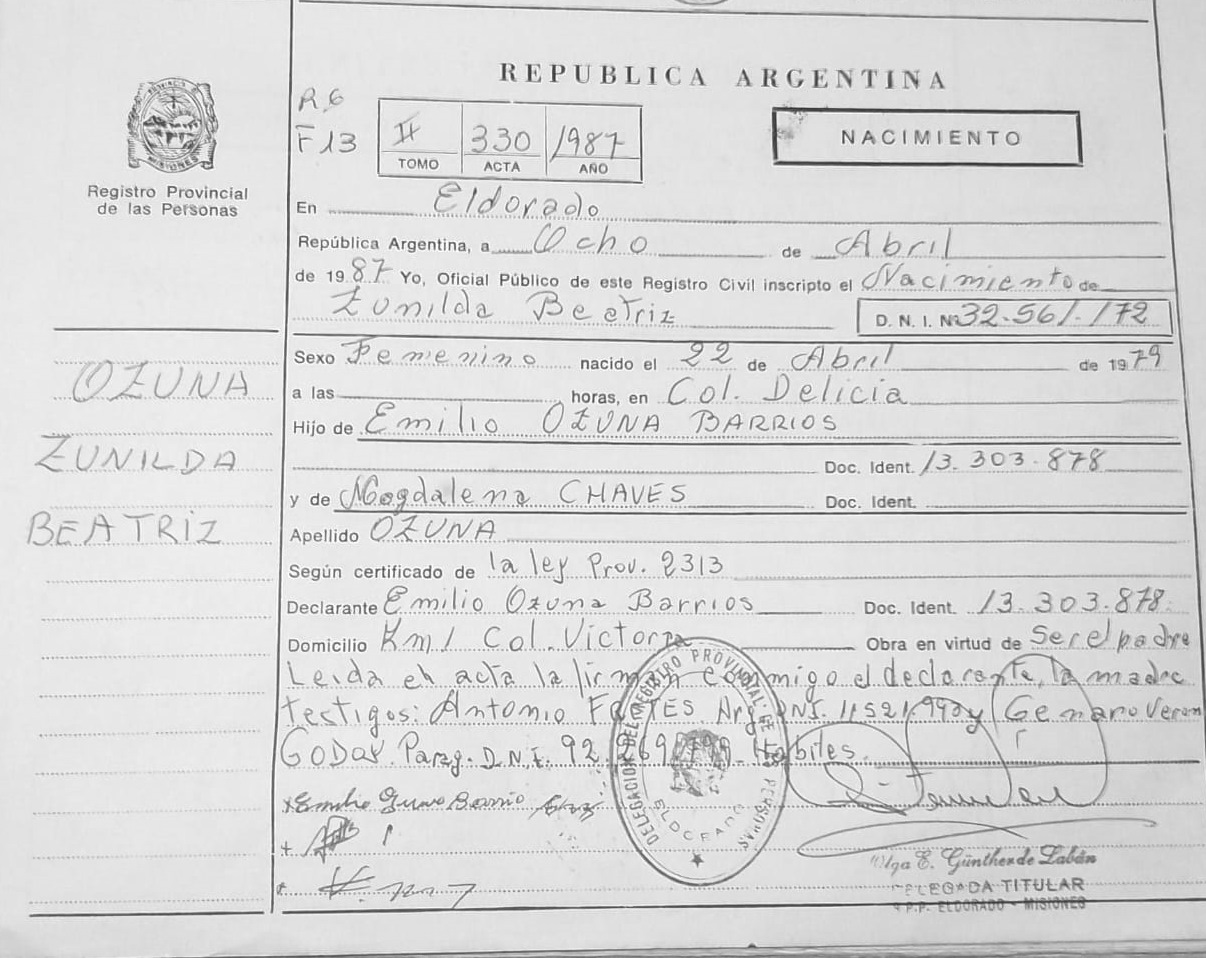 REPUBLICA ARGENTINA
PROVINCIA DE
MISIONES
Registro Provincial
de las Personas
R.6
F13
II 330 1987
TOMO ACTA AÑO
NACIMIENTO
En Eldorado
República Argentina, a Ocho de Abril
de 1987 Yo, Oficial Público de este Registro Civil inscripto el Nacimiento de
Zunilda Beatriz D. N. I. Nº 32.561.172
OZUNA
ZUNILDA
BEATRIZ
Sexo Femenino nacido el 22 de Abril de 1979
a las horas, en Col. Delicia
Hijo de Emilio OZUNA BARRIOS
Doc. Ident. 13.303.878
y de Magdalena CHAVES Doc. Ident.
Apellido OZUNA
Según certificado de la ley Prov. 2313
Declarante Emilio Ozuna Barrios Doc. Ident. 13.303.878
Domicilio Km 1 Col. Victoria Obra en virtud de Ser el padre
Leida el acta la firman conmigo el declarante, la madre
testigos: Antonio Arg. DNI. y Genaro Veron
GODOY. Parag. D.N.I. 92. Habiles.
Emilio
DELEGACION DEL REGISTRO PROVINCIAL DE LAS PERSONAS
ELDORADO
Olga E. Günther de Labán
DELEGADA TITULAR
R.P.P. ELDORADO - MISIONES